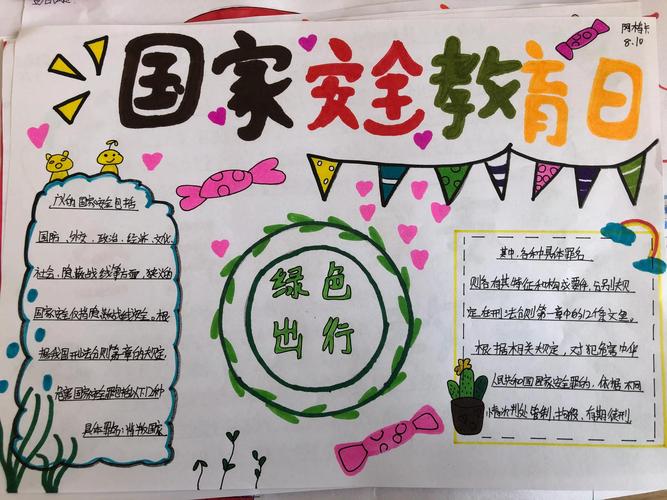 国家安全教育日
8.10
广义的国家安全包括
国防、外交、政治、经济、文化、
社会、隐蔽战线等方面，狭义的
国家安全仅指隐蔽战线安全。根
据我国刑法分则第一章的规定，
危害国家安全罪包括以下12种
具体罪名：背叛国家
绿色
出行
其中，各种具体罪名
则各有其特征和构成要件，分别规
定在刑法分则第一章中的12条文里。
根据相关规定，对犯危害中华
人民共和国国家安全罪的，依据不同
情况判处管制、拘役、有期徒刑